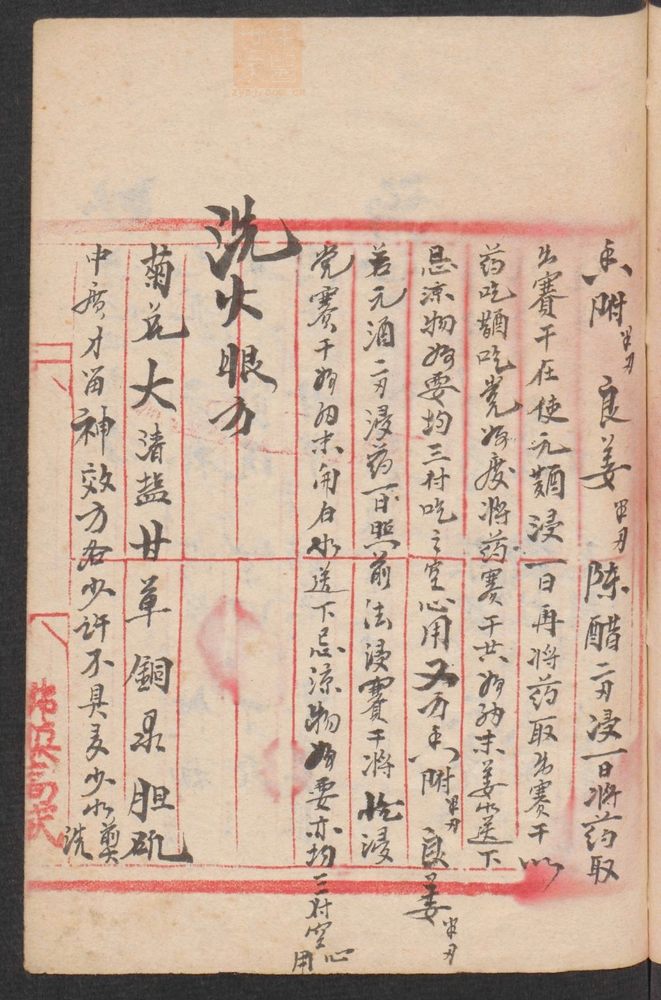 香附半刃 良姜半刃 陈醋二刃浸一日将药取
出赛干在使元酒浸一日再将药取出赛干以
药吃酒吃党为度将药赛干共为细末姜水送下
忌凉物为要均三付吃之空心用又方香附半刃 良姜半刃
若元酒二刃浸药一日照前法浸赛干将忱浸
党赛干为细末用白水送下忌凉物为要亦均三付空心用
洗火眼方
菊花大清盐甘草铜录胆矾
中广才笛神效方各少许不具多少水煎洗